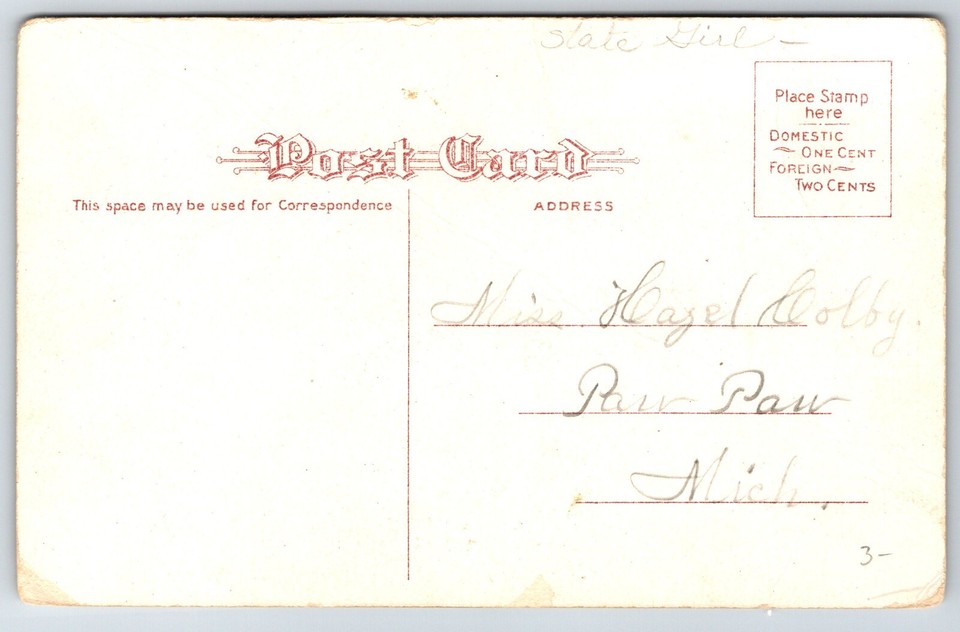 State Girl -
Post Card
Place Stamp
here
DOMESTIC
ONE CENT
FOREIGN
TWO CENTS
This space may be used for Correspondence
ADDRESS
Miss Hazel Colby.
Paw Paw
Mich.
3-